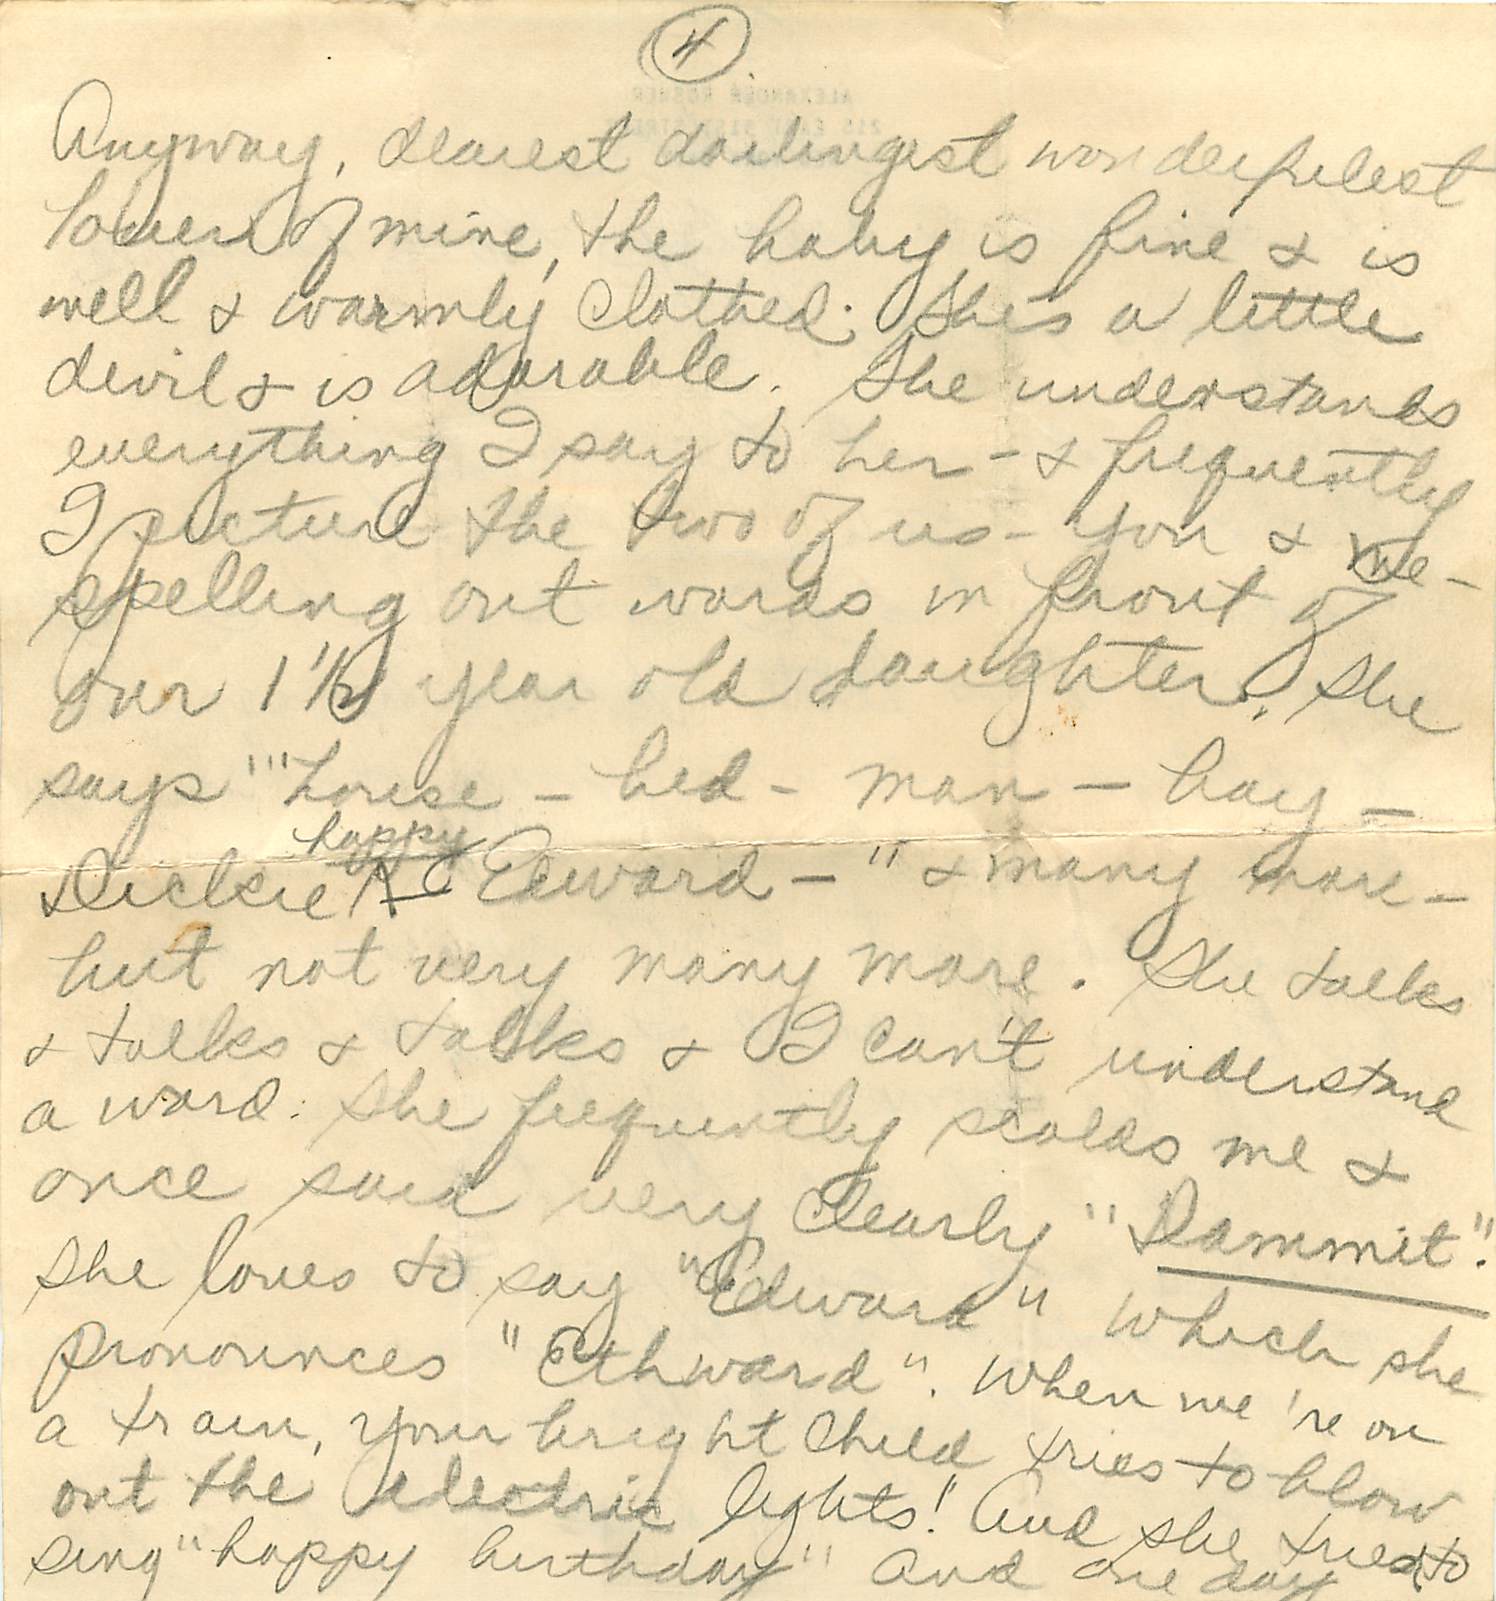 4
ALEXANDER ROSNER
215 EAST 51ST STREET
Anyway, dearest darlingest wonderfulest
lover of mine, the baby is fine & is
well & warmly clothed. She's a little
devil & is adorable. She understands
everything I say to her - & frequently
I picture the two of us - you & me -
spelling out words in front of
our 1 1/2 year old daughter. She
says "'house - bed - man - bay -
happy
Dickie ^ Edward - " & many more -
but not very many more. She talks
& talks & talks & I can't understand
a word. She frequently scolds me &
once said very clearly "Dammit".
She loves to say "Edward" which she
pronounces "Ethward". When we're on
a train, your bright child tries to blow
out the electric lights! And she tries to
sing "happy birthday" and one day